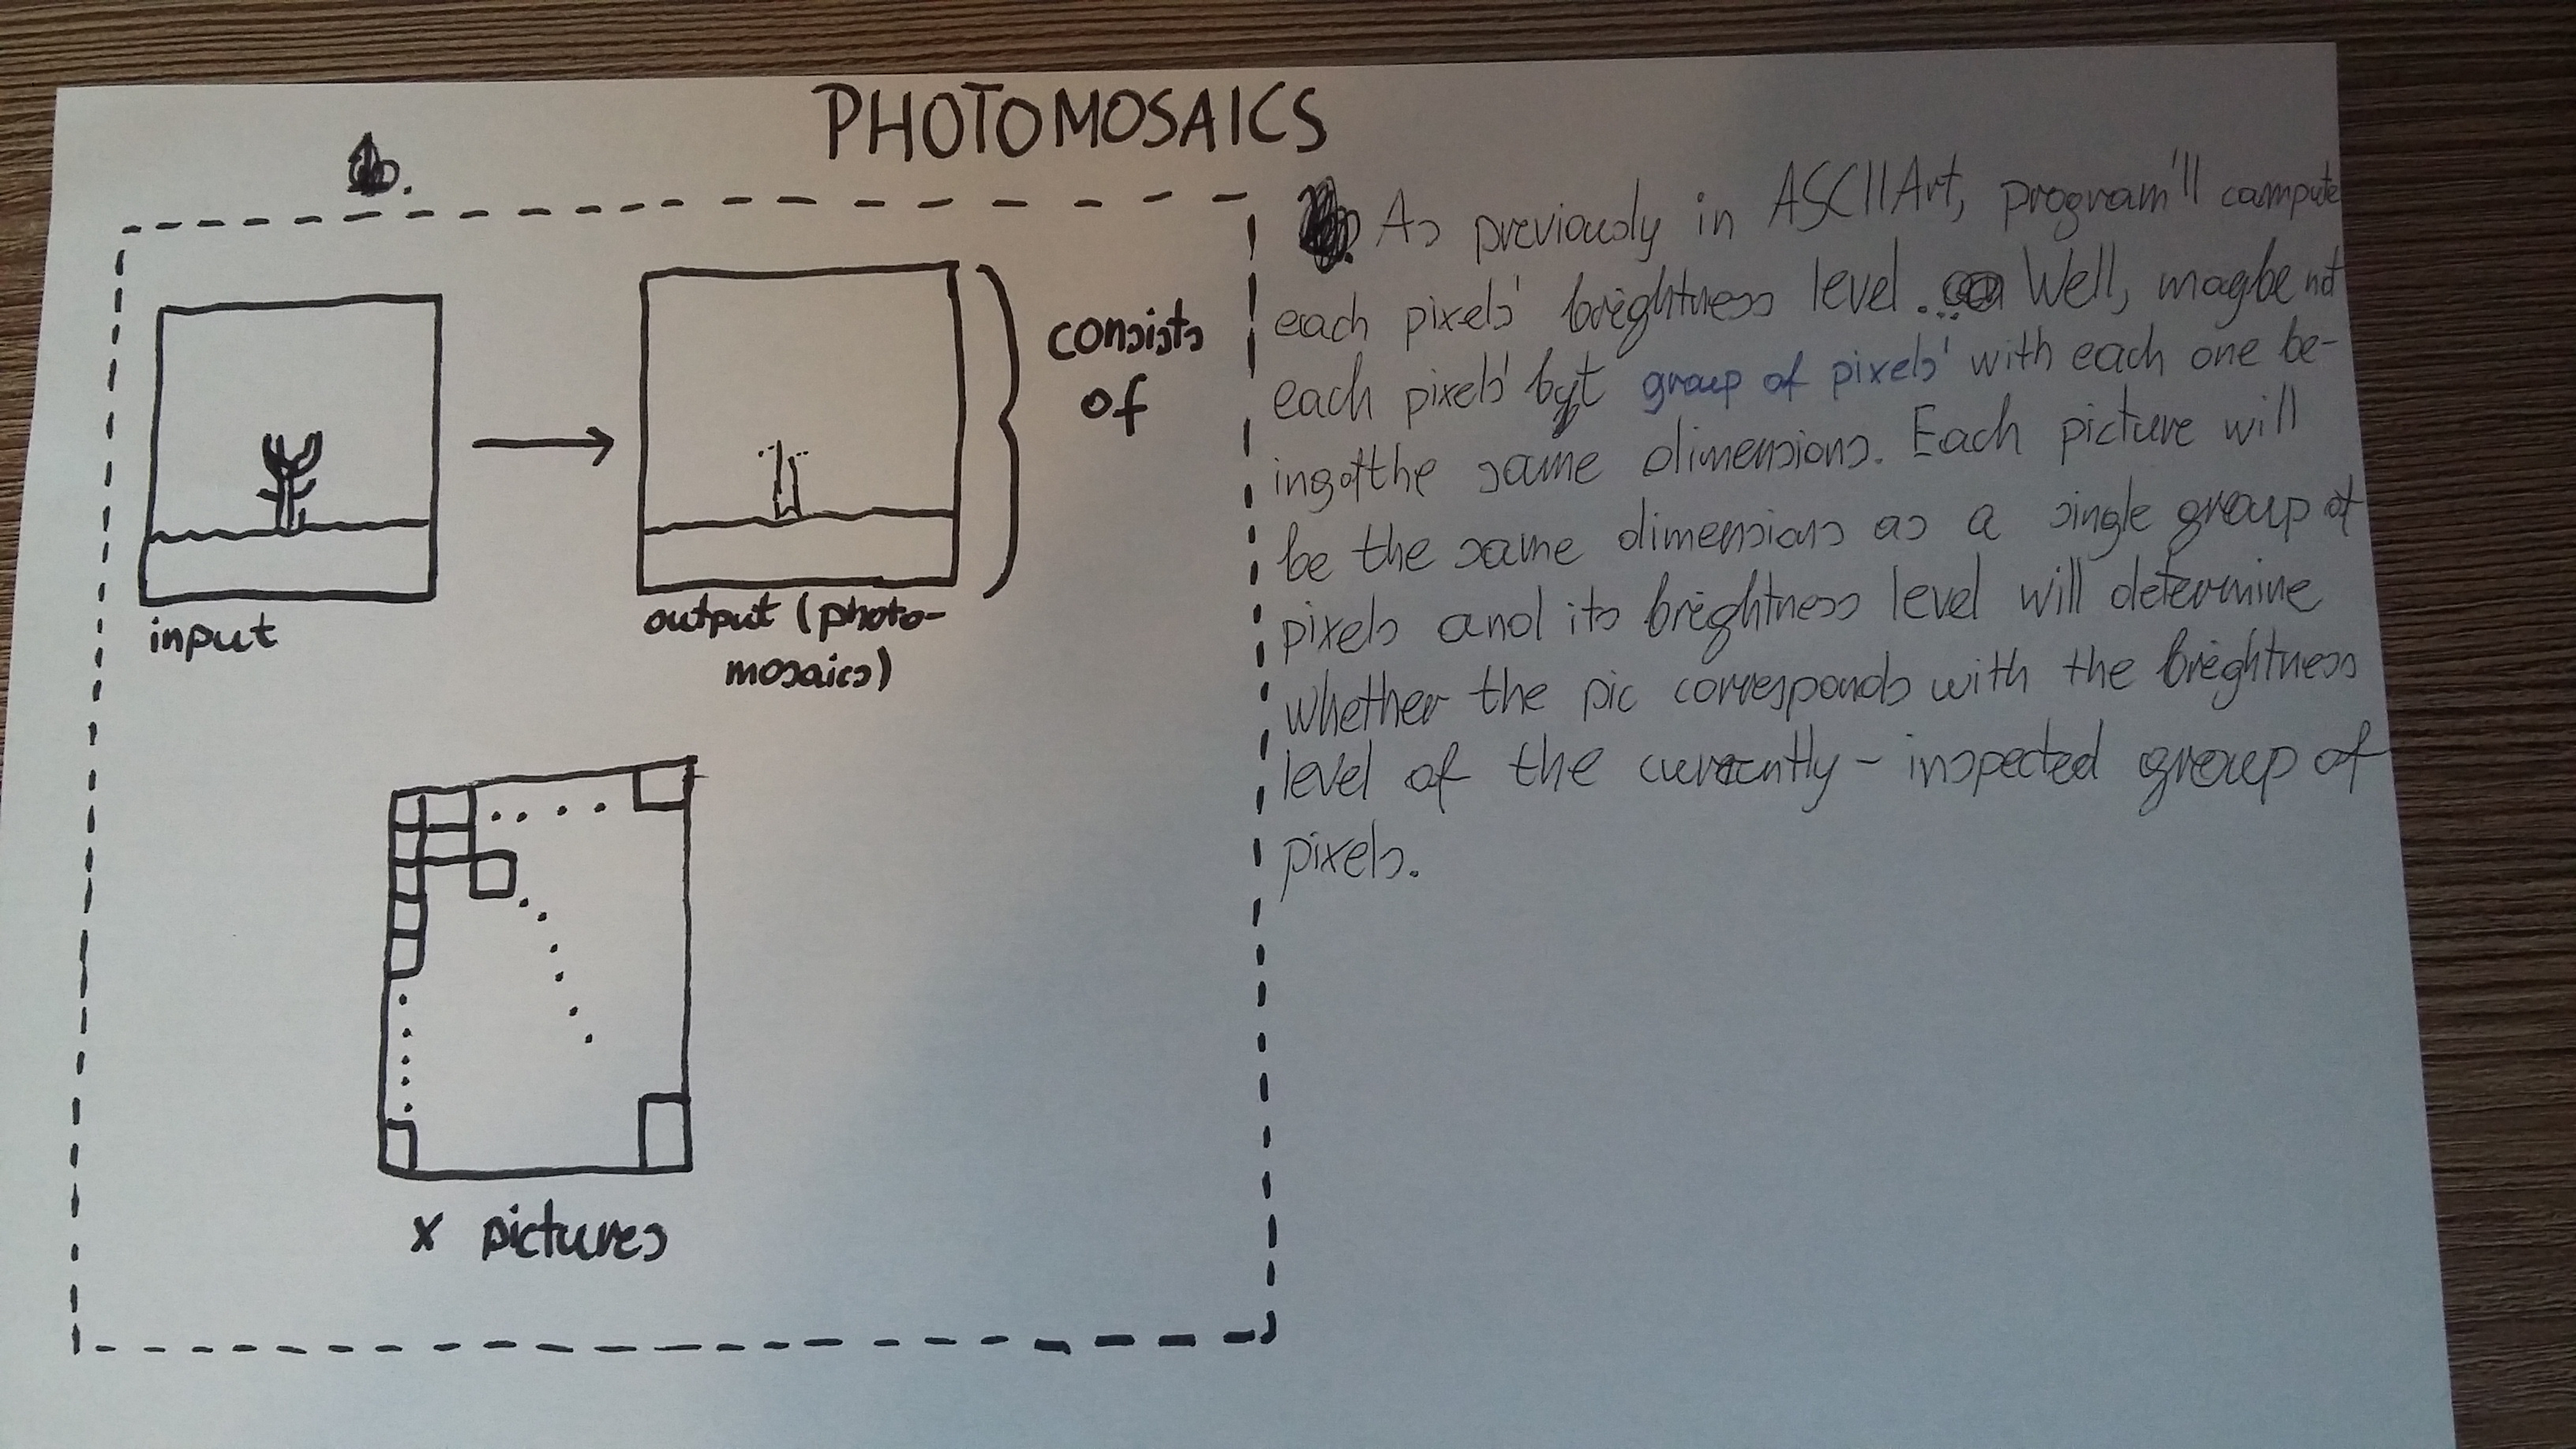 PHOTOMOSAICS
input
output (photo-
mosaics)
consists
of
x pictures
As previously in ASCIIArt, program'll compute
each pixels' brightness level... Well, maybe not
each pixels' byt group of pixels' with each one be-
ing of the same dimensions. Each picture will
be the same dimensions as a single group of
pixels and its brightness level will determine
whether the pic corresponds with the brightness
level of the currently-inspected group of
pixels.